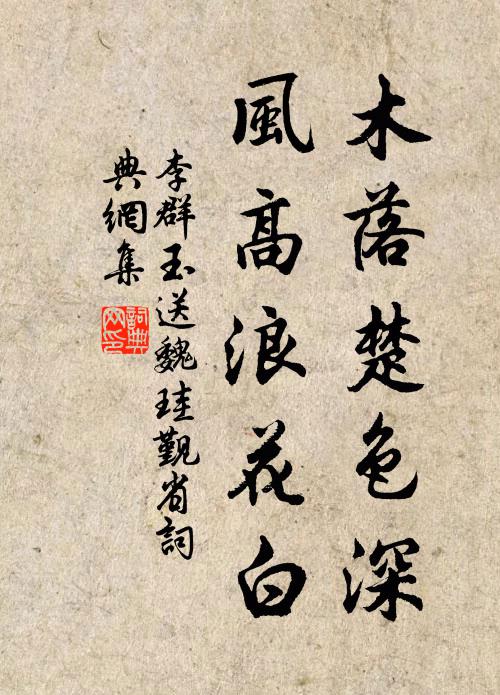 木落楚色深
風高浪花白
李群玉送魏珪覲省詞
典網集
詞典網印